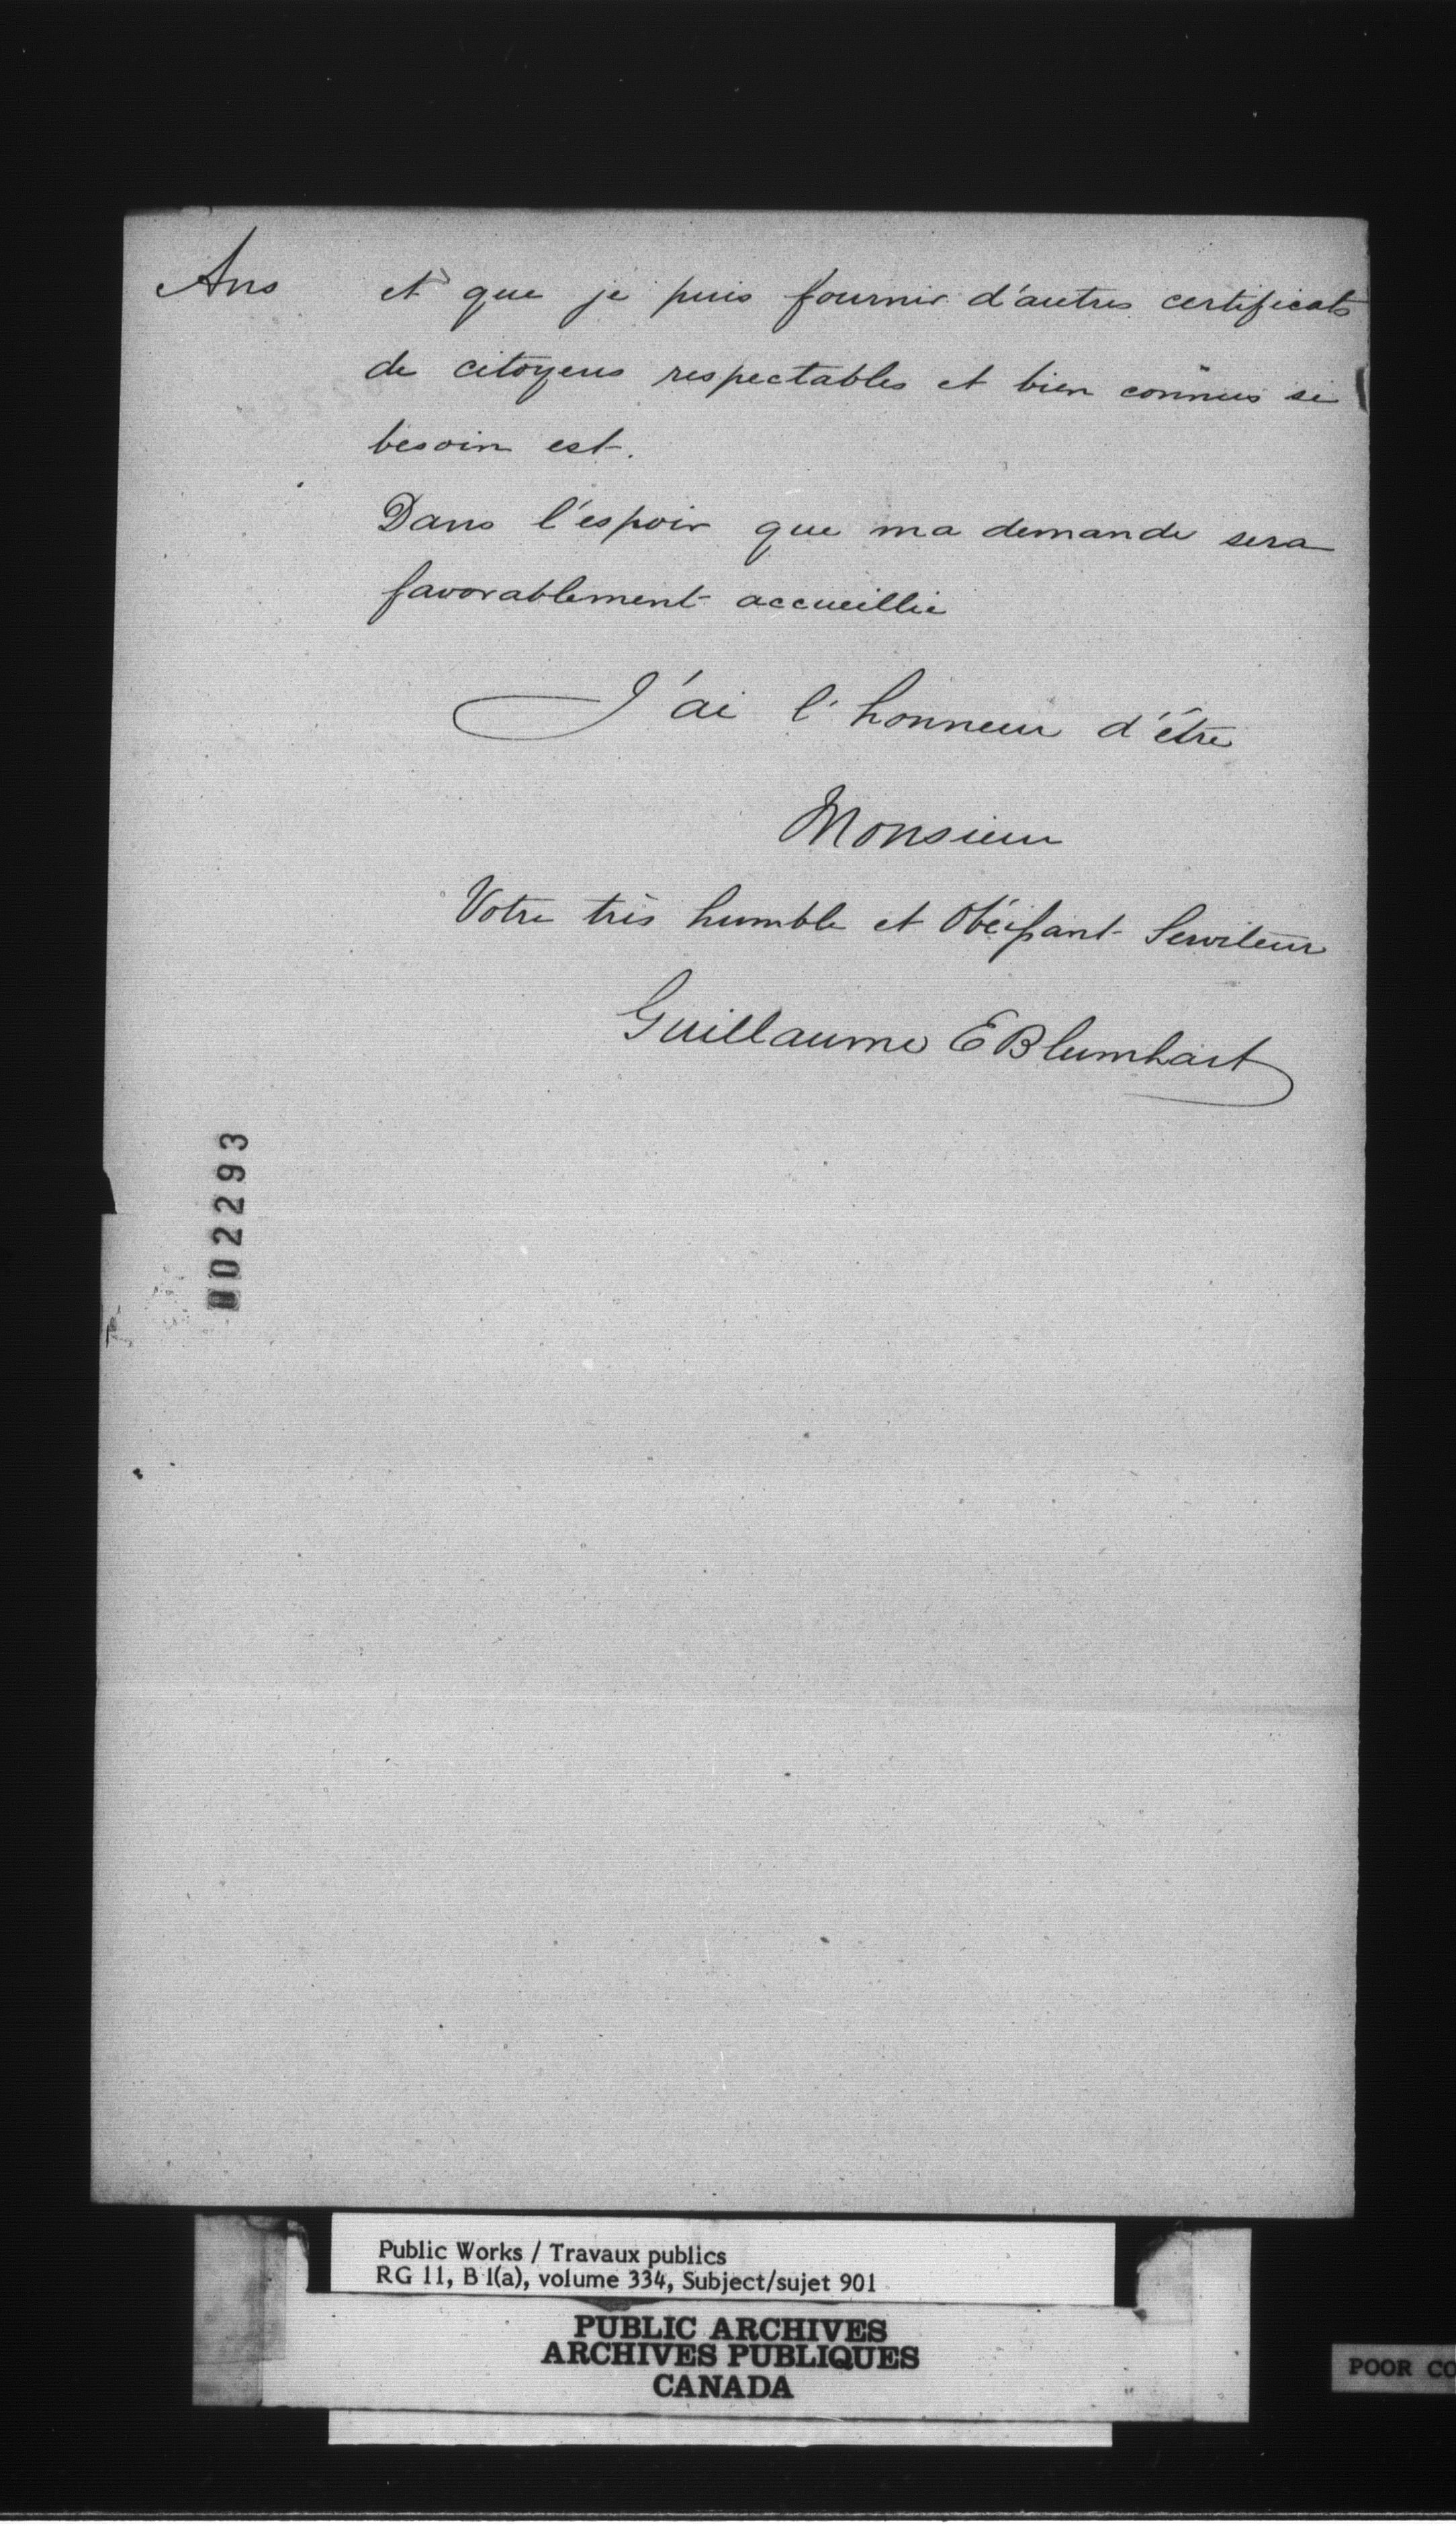 Ans
et que je puis fournir d'autres certificats
de citoyens respectables et bien connus si
besoin est.
Dans l'espoir que ma demande sera
favorablement accueillie
J'ai l'honneur d'être
Monsieur
Votre très humble et Obéissant Serviteur
Guillaume E Blumhart
002293
Public Works / Travaux publics
RG 11, B 1(a), volume 334, Subject/sujet 901
PUBLIC ARCHIVES
ARCHIVES PUBLIQUES
CANADA
POOR CO